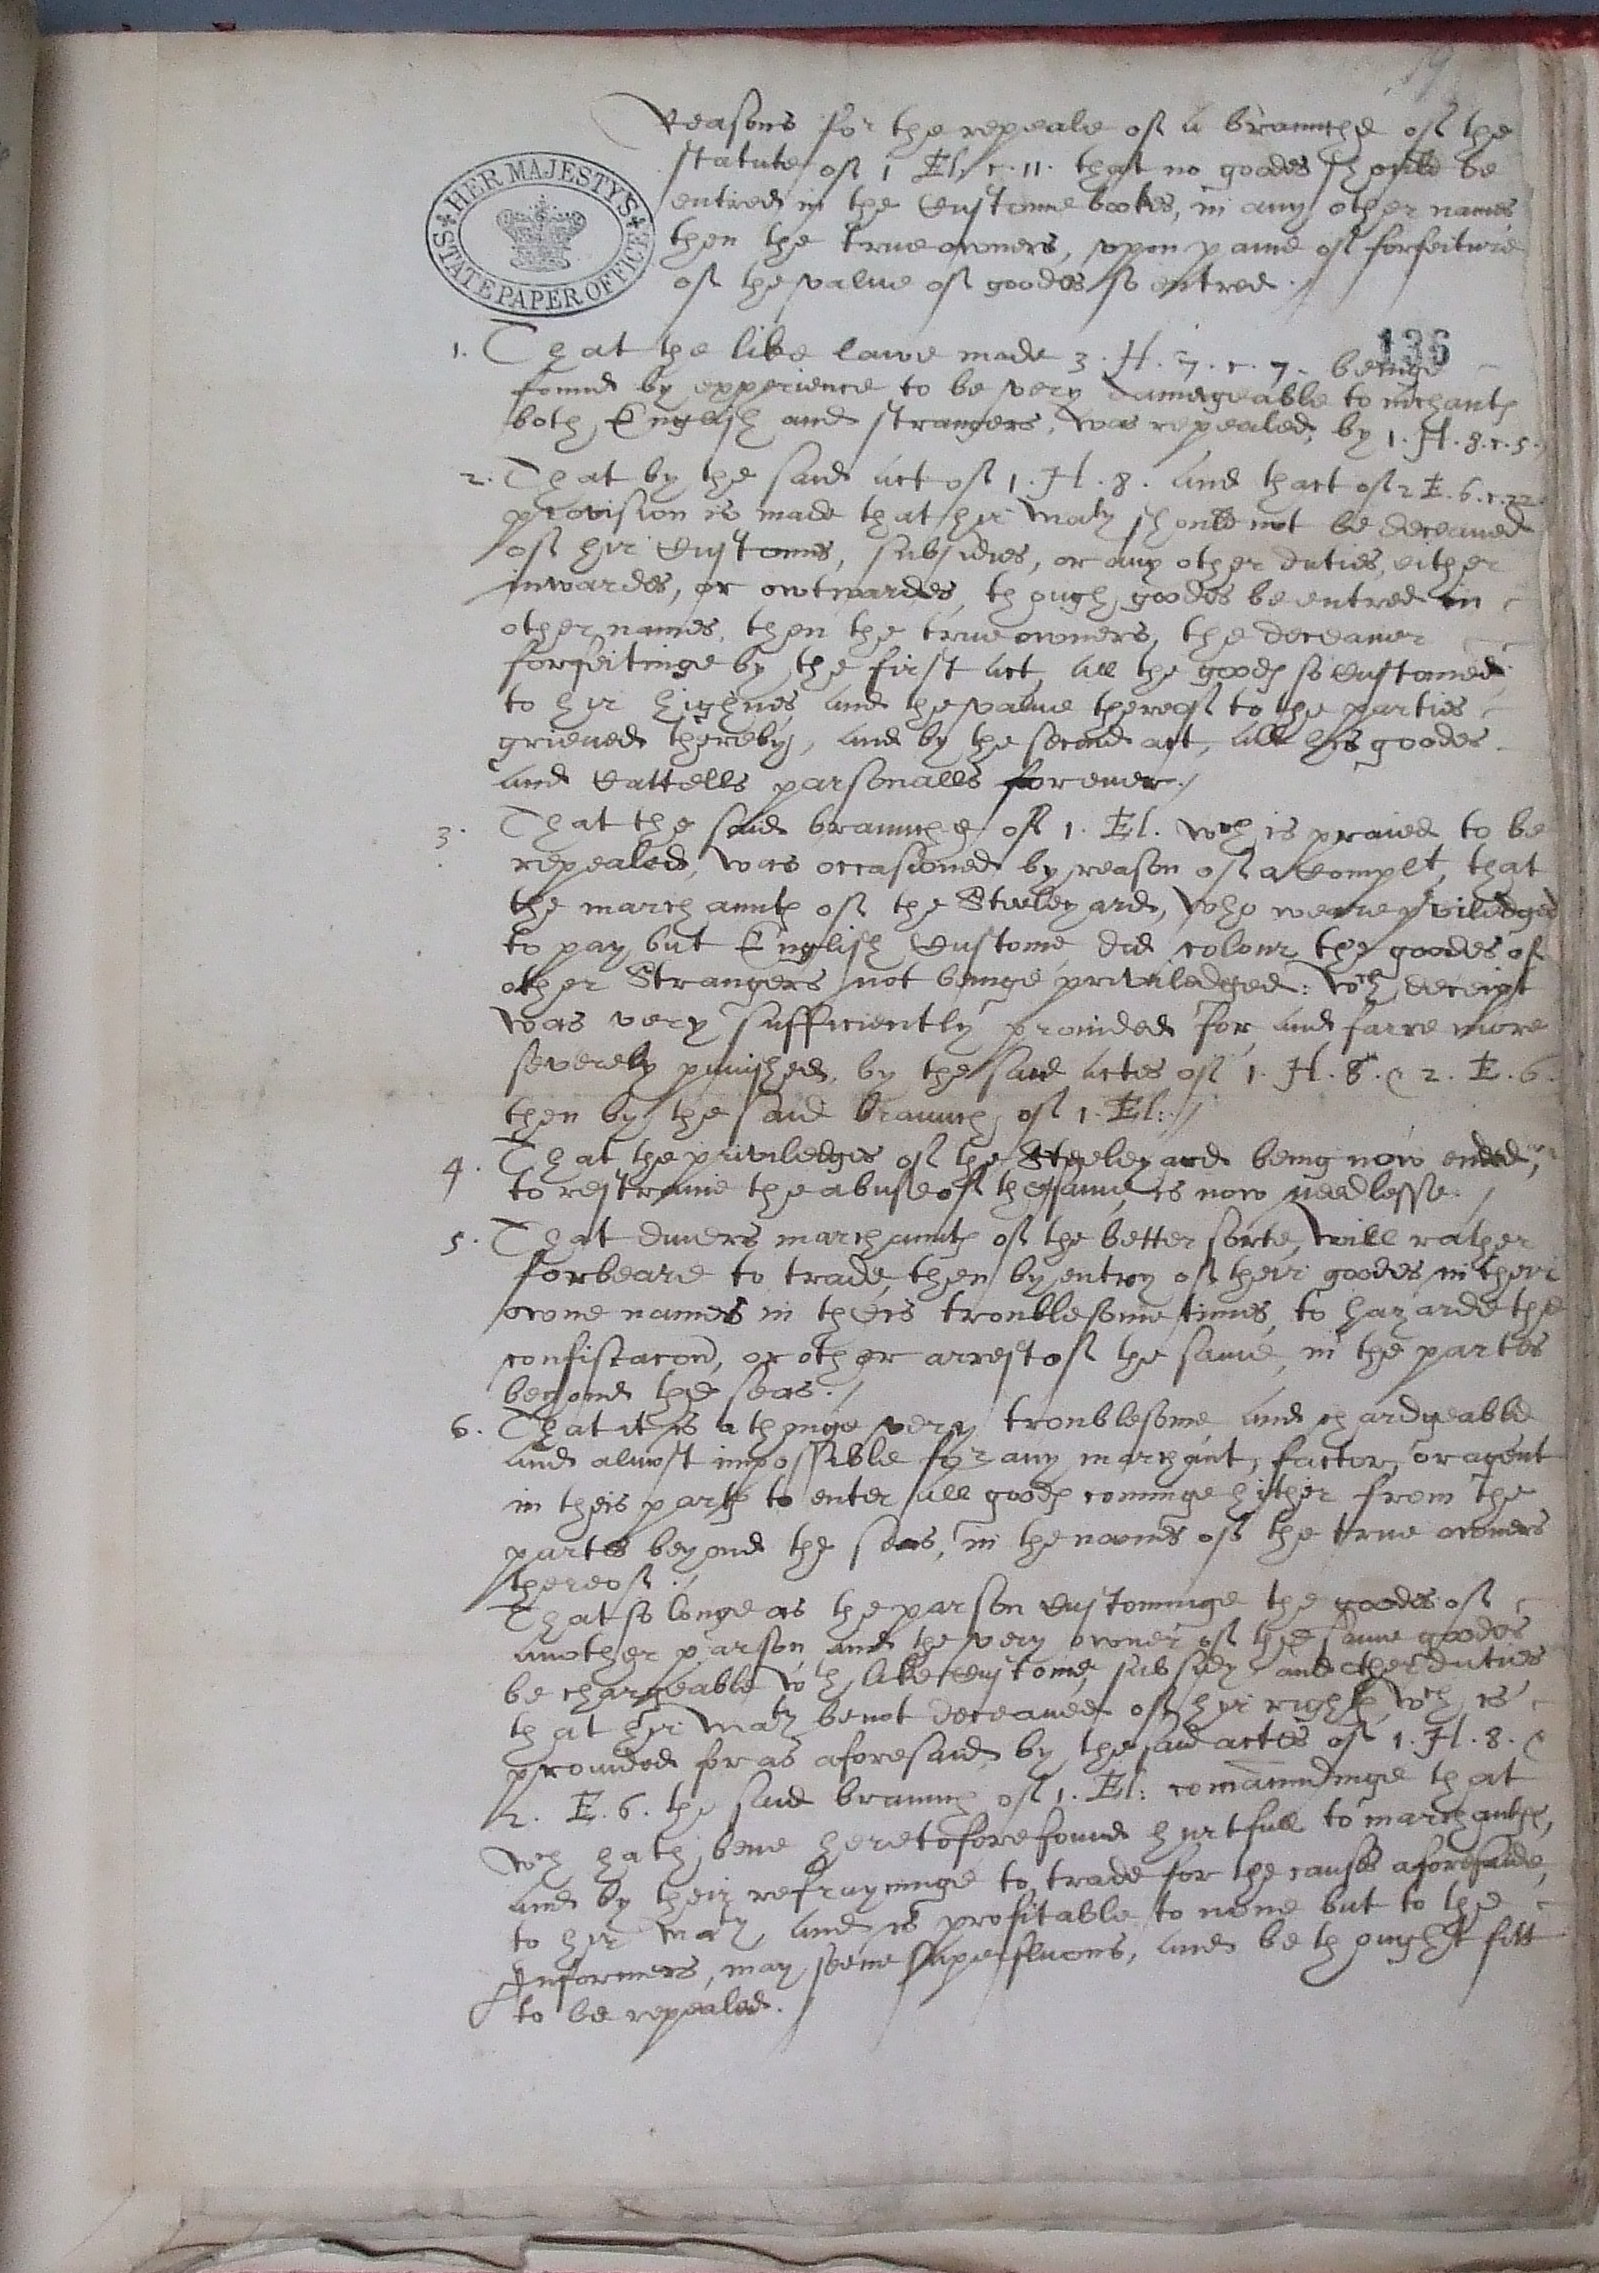 Reasons for the repeale of a braunche of the
statute of 1 El: c. 11. that no goodes should be
entred in the Custome bookes, in any other names
then the true owners, upon paine of forfeiture
of the value of goodes so entred./
HER MAJESTY'S STATE PAPER OFFICE
136
1. That the like lawe made 3. H. 7. c. 7. beinge
found by experience to be very damageable to mchantes
both English and strangers, was repealed, by 1. H. 8. c. 5.
2. That by the said act of 1. H. 8. and thact of 2 E. 6. c. 22
provision is made that hir Maty should not be deceaved
of hir Customs, subsidies, or any other duties, either
inwardes, or owtwardes, though goodes be entred in
other names, then the true owners, the deceaver
forfeitinge by the first act, all the goodes so Customed,
to hir highnes and the value thereof to the parties
grieved thereby, and by the second act, all his goodes
and Cattells parsonalls forever./
3. That the said braunche of 1. El. wch is praied to be
repealed, was occasioned by reason of a Complt, that
the marchauntes of the Steeleyard, who weare priviledged
to pay but English Custome did colour the goodes of
other Strangers not beinge priviledged: wch deceipt
was very sufficiently provided for, and farre more
severely punished, by the said actes of 1. H. 8. & 2. E. 6.
then by the said braunch of 1. El:./
4. That the priviledges of the Steeleyard being now ended,
to restraine the abuse of the same, is now needlesse./
5. That divers marchauntes of the better sorte, will rather
forbeare to trade, then by entry of their goodes in their
owne names in theis troublesome times, to hazarde the
confiscacon, or other arrest of the same, in the partes
beyond the seas./
6. That it is a thinge very troublesome and chardgeable
and almost impossible for any marchant, factor, or agent
in theis partes to enter all goodes cominge hither from the
partes beyond the seas, in the names of the true owners
thereof./
That so longe as the parson Custominge the goodes of
another parson, and the very owner of the same goodes
be chargeable wth like Custome, subsidy and other duties
that hir Maty be not deceaved of hir right, wch is
provided for as aforesaid, by the said actes of 1. H. 8. &
2. E. 6. the said braunch of 1. El: comaundinge that
wch hath bene heretofore found hurtfull to marchantes,
and by their refrayninge to trade for the causes aforesaide,
to hir Maty, and is profitable to none but to the
Informers, may seeme superfluous, and be thought fitt
to be repealed./